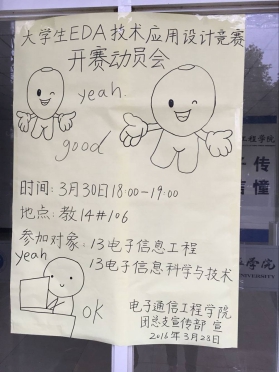 大学生EDA技术应用设计竞赛
开赛动员会
yeah
good
时间：3月30日18:00-19:00
地点：教14#106
参加对象：13电子信息工程
13电子信息科学与技术
yeah
ok
电子通信工程学院
团总支宣传部 宣
2016年3月28日
工程学院
子传
信懂
学院